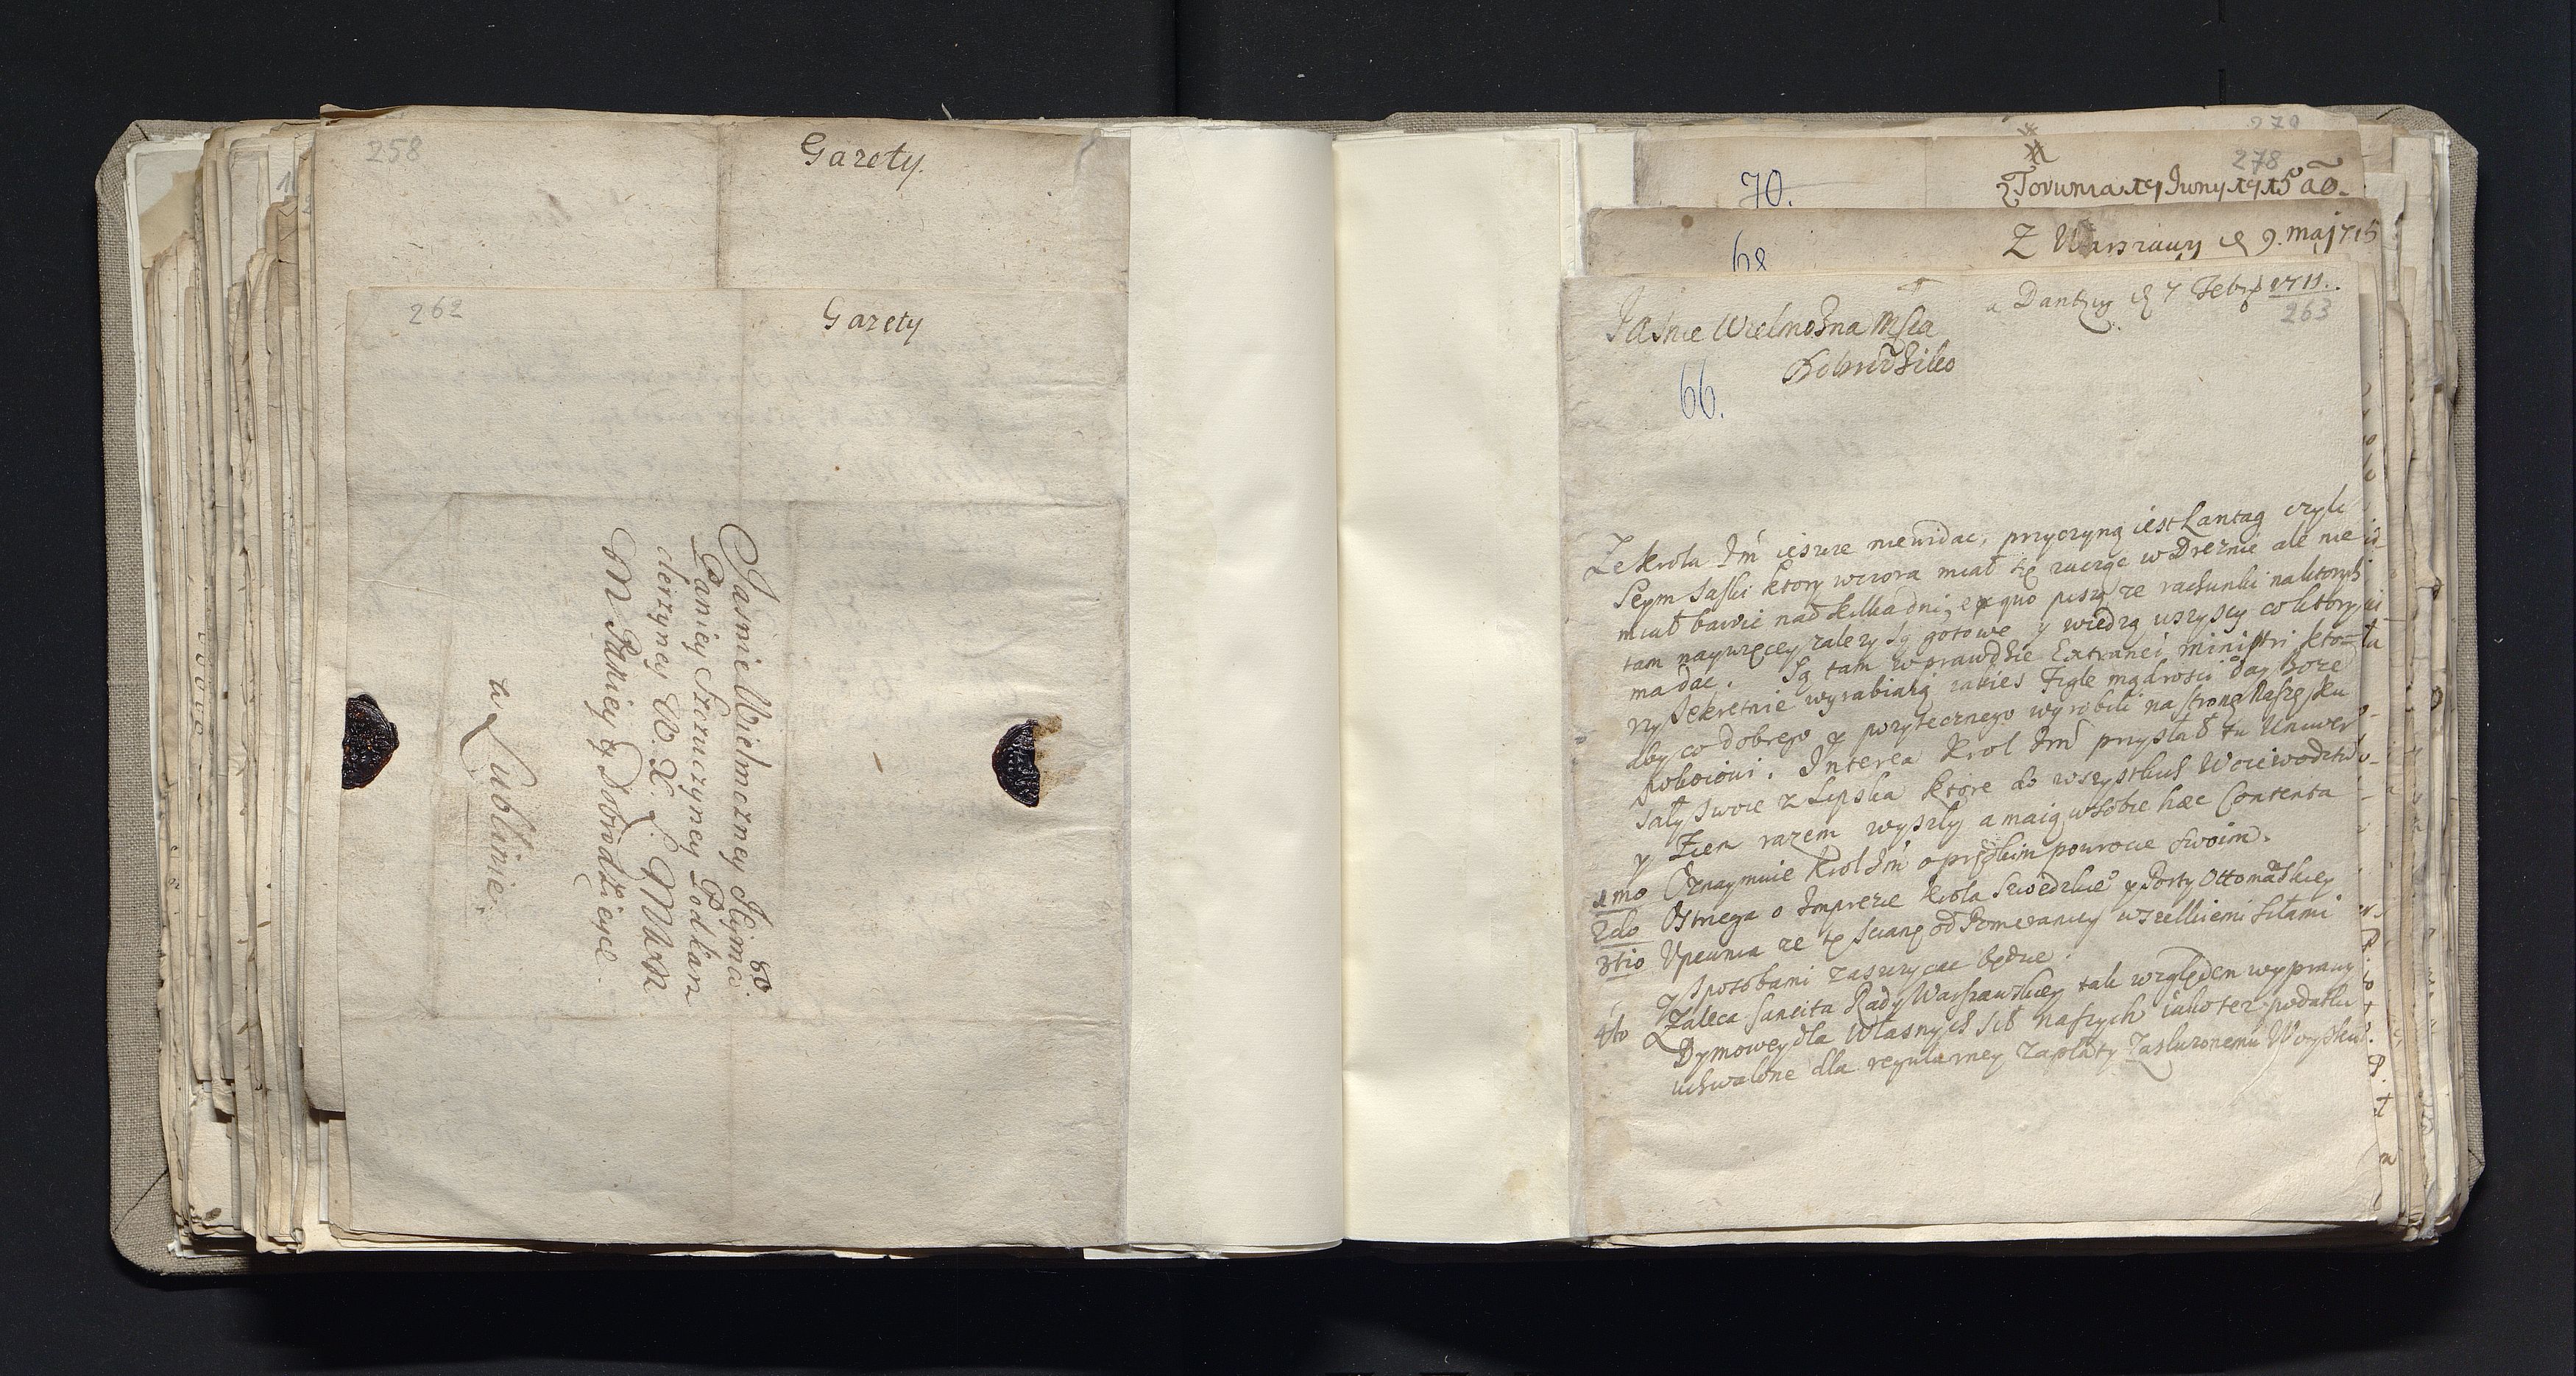 258
Gazety.
262
Gazety
Jasnie Wielmożney Jeyma.
Paniey Szczuczyney Podkan
clerzyney W. X. L. Mwm
M Paniey y Dobrodzieyce.
a Lublinie.
80.
279
278
70.
z Torunia 19 Juny 1715 ao.
68
Z Warszawy d 9. maj 715
a Dantzig d 7 Febr 1711.
263
Jasnie Wielmożna Mscia
Dobrodziko
66.
Ze Krola Jm ieszcze niewidac, przyczyną iest Lantag czyli
Seym Saski ktory wczora miał się zacząc w Dreznie ale nie
miał bawic nad kilka dni, ex quo piszą ze rachunki na ktorych
tam naywięcey zalezy są gotowe y wiedzą wszyscy co ktory
ma dac. Są tam wprawdzie Extranei ministri kto=
rzy sekretnie wyrabiaią iakies figle mądrosci day Boze
aby co dobrego y pozytecznego wyrobili na stronę Naszę ku
pokoiowi. Interea Krol Jm przysłał tu Uniwer
sały swoie z Lipska ktore do wszystkich Woiewodztw
y Ziem razem wyszły a maią w sobie hæc Contenta
1mo Oznaymuie Krol Jm o prędkim powrocie swoim.
2do Ostrzega o Imprezie Krola Szwedzkie° y Porty Ottomańskiey
3tio Upewnia ze tę scianę od Pomeraniey wszelkiemi siłami
y sposobami zaszczycac będzie.
4to Zaleca sancita Rady Warszawskiey tak względem wyprawy
Dymowey dla Własnych sił naszych iako tez podatku
uchwalone dla regularney zapłaty zasłuzonemu Woysku.